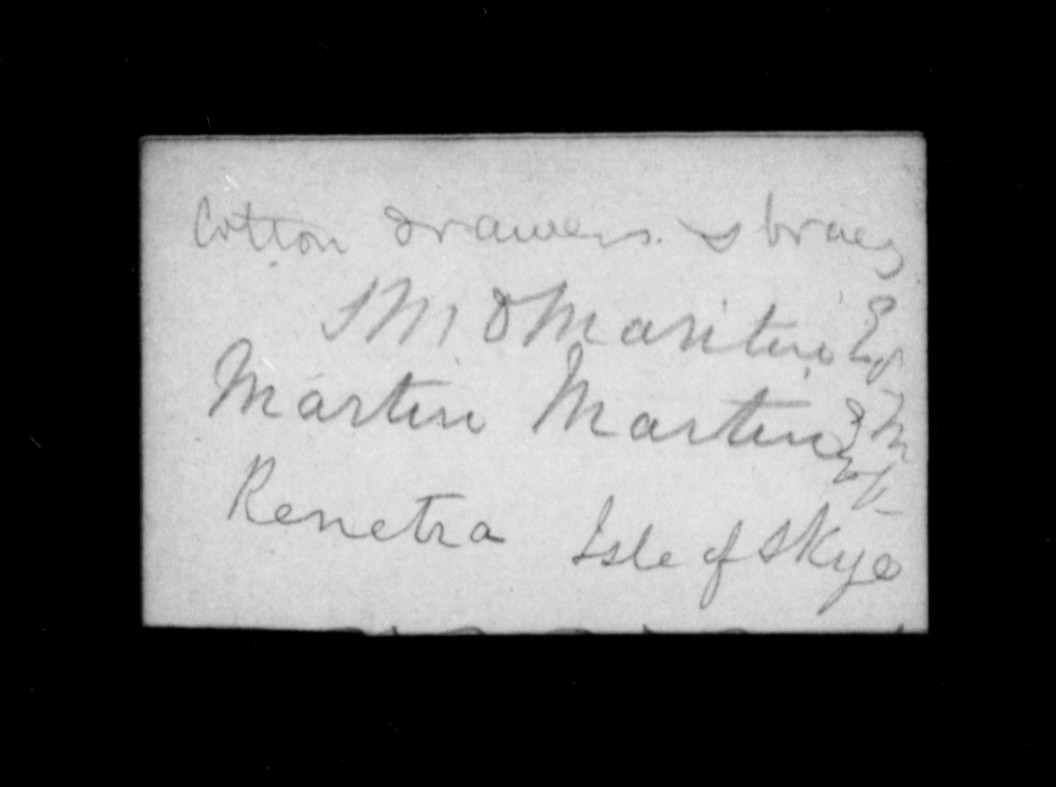 Cotton drawers.
J M D Martin Esq
Martin Martin Esq
Renetra Isle of Skye